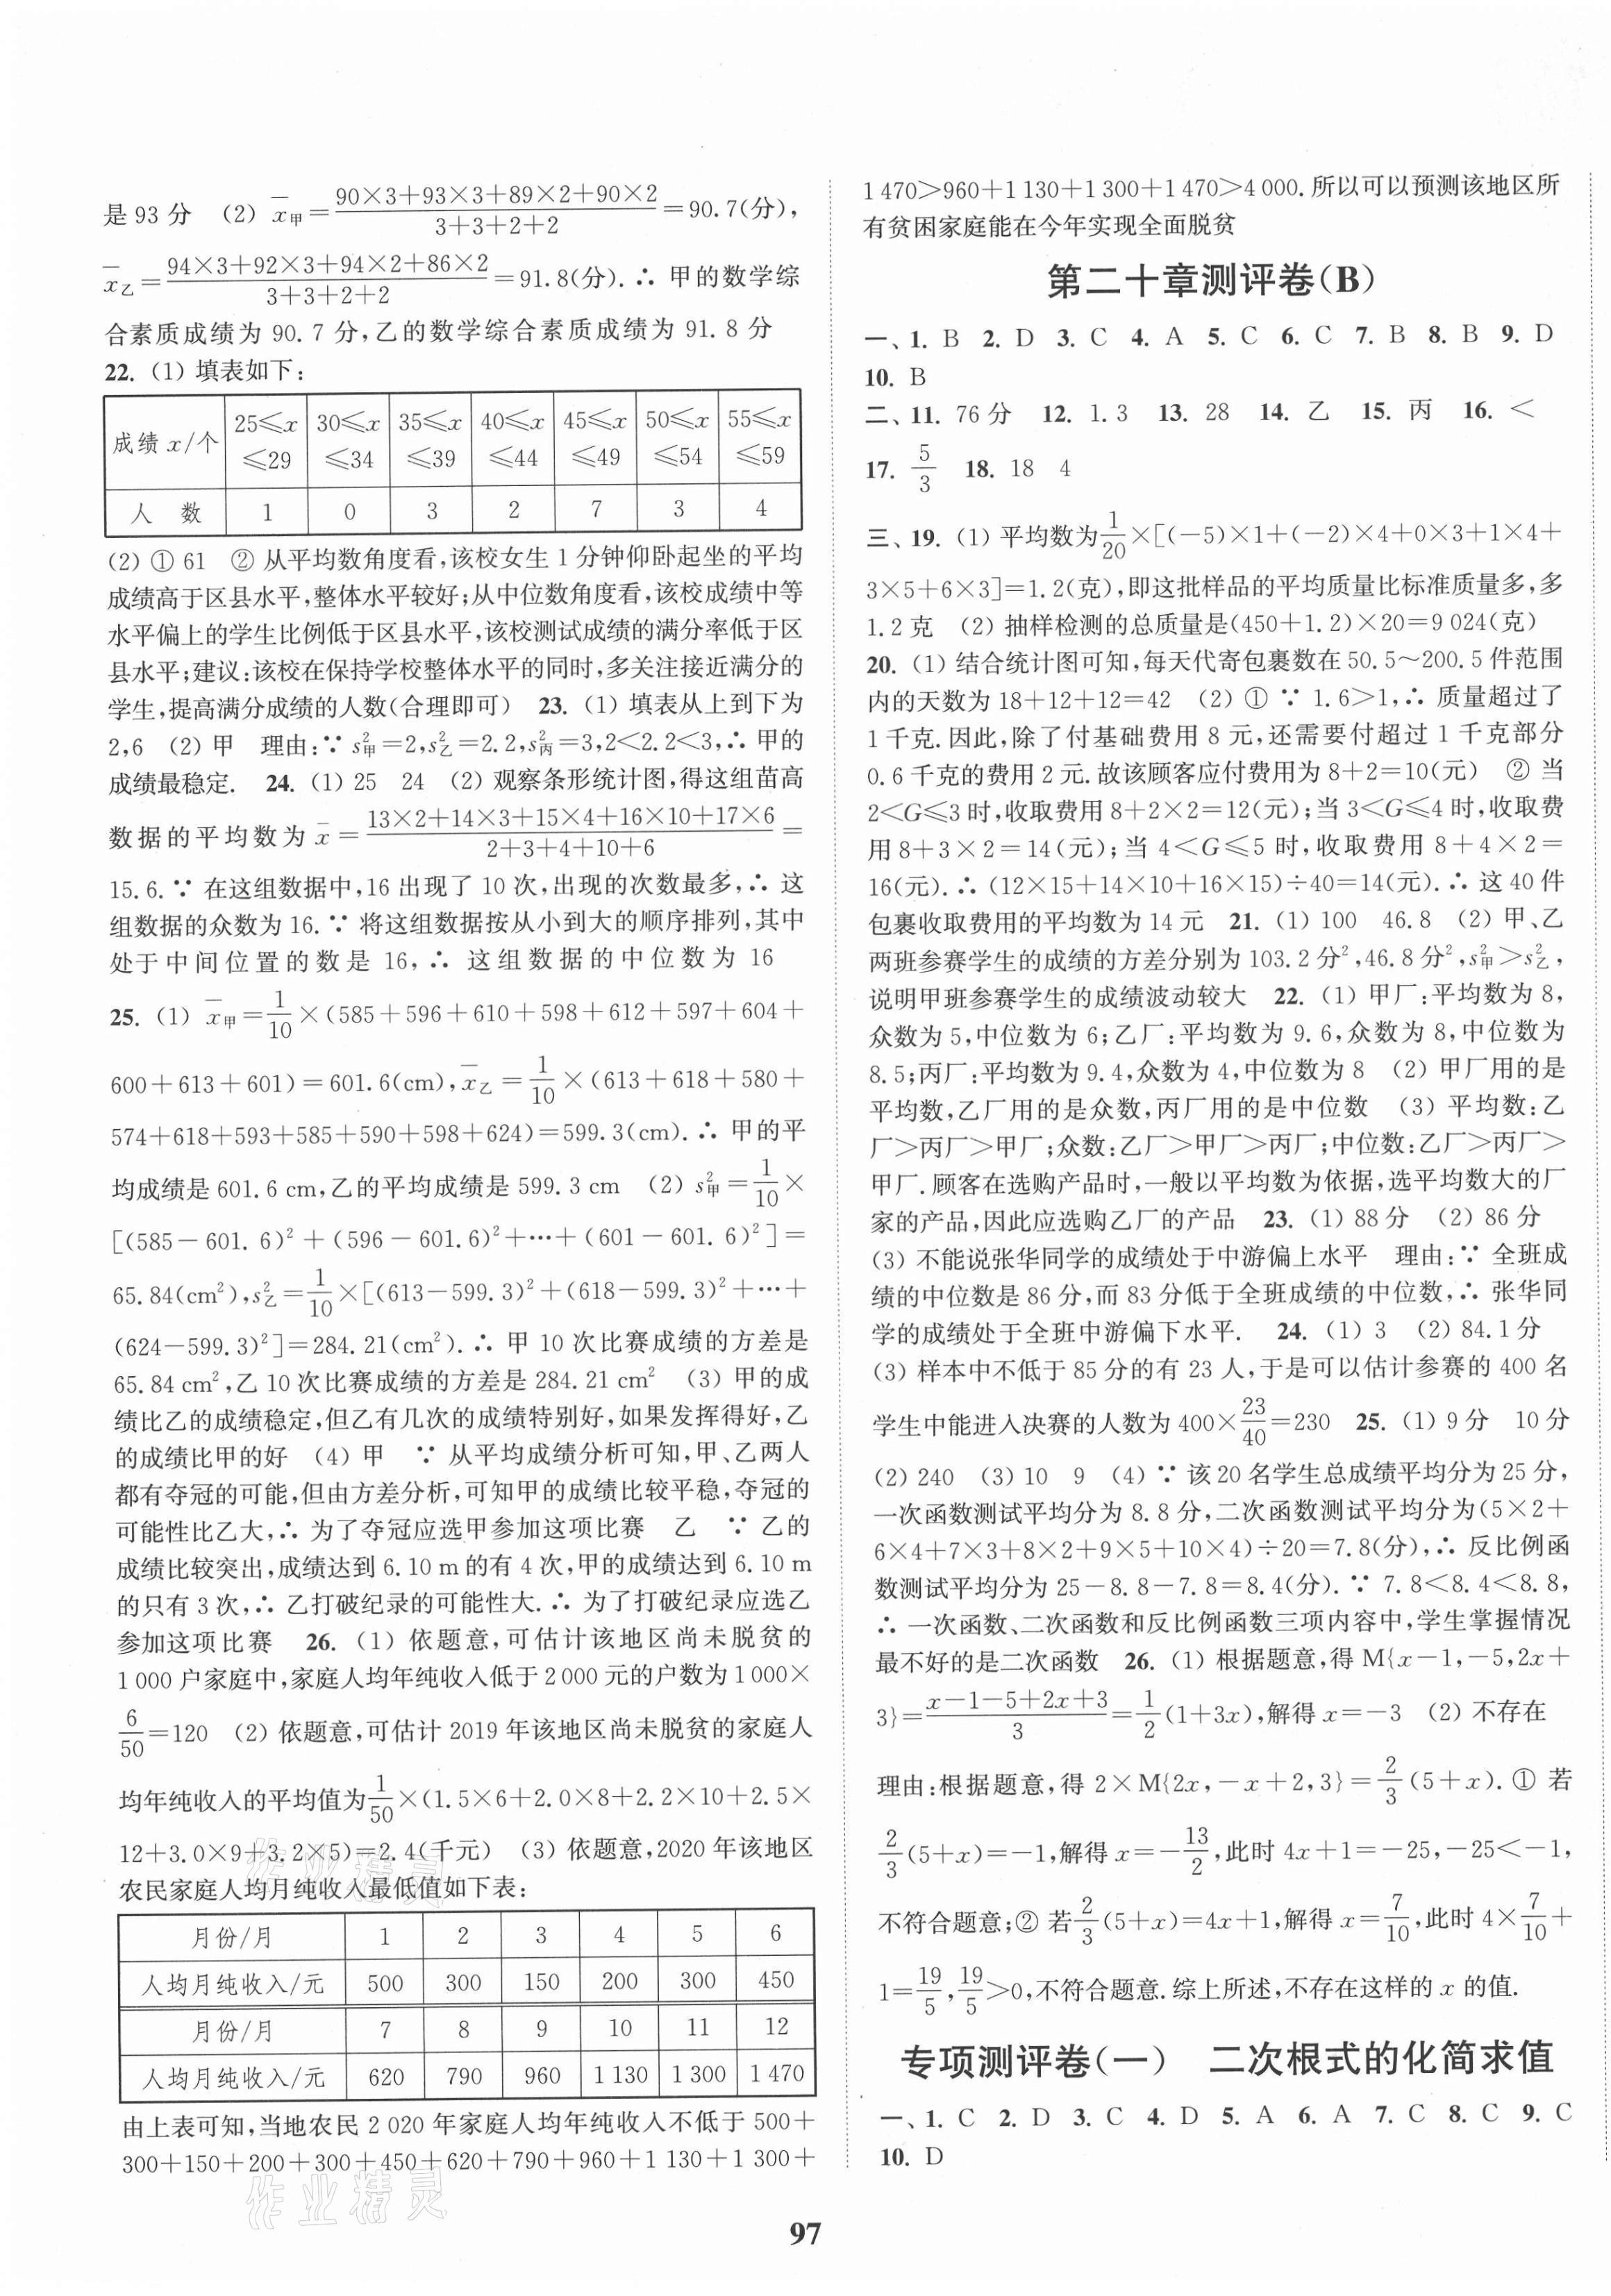 是93分 (2) x̄甲=(90×3+93×3+89×2+90×2)/(3+3+2+2)=90.7(分),
x̄乙=(94×3+92×3+94×2+86×2)/(3+3+2+2)=91.8(分).∴ 甲的数学综
合素质成绩为90.7分,乙的数学综合素质成绩为91.8分
22. (1) 填表如下:
成绩 x/个 25≤x≤29 30≤x≤34 35≤x≤39 40≤x≤44 45≤x≤49 50≤x≤54 55≤x≤59
人 数 1 0 3 2 7 3 4
(2) ① 61 ② 从平均数角度看,该校女生1分钟仰卧起坐的平均
成绩高于区县水平,整体水平较好;从中位数角度看,该校成绩中等
水平偏上的学生比例低于区县水平,该校测试成绩的满分率低于区
县水平;建议:该校在保持学校整体水平的同时,多关注接近满分的
学生,提高满分成绩的人数(合理即可) 23. (1) 填表从上到下为
2,6 (2) 甲 理由:∵ s²甲=2,s²乙=2.2,s²丙=3,2<2.2<3,∴ 甲的
成绩最稳定. 24. (1) 25 24 (2) 观察条形统计图,得这组苗高
数据的平均数为 x̄=(13×2+14×3+15×4+16×10+17×6)/(2+3+4+10+6)=
15.6.∵ 在这组数据中,16出现了10次,出现的次数最多,∴ 这
组数据的众数为16.∵ 将这组数据按从小到大的顺序排列,其中
处于中间位置的数是16,∴ 这组数据的中位数为16
25. (1) x̄甲=1/10×(585+596+610+598+612+597+604+
600+613+601)=601.6(cm),x̄乙=1/10×(613+618+580+
574+618+593+585+590+598+624)=599.3(cm).∴ 甲的平
均成绩是601.6 cm,乙的平均成绩是599.3 cm (2) s²甲=1/10×
[(585-601.6)²+(596-601.6)²+…+(601-601.6)²]=
65.84(cm²),s²乙=1/10×[(613-599.3)²+(618-599.3)²+…+
(624-599.3)²]=284.21(cm²).∴ 甲10次比赛成绩的方差是
65.84 cm²,乙10次比赛成绩的方差是284.21 cm² (3) 甲的成
绩比乙的成绩稳定,但乙有几次的成绩特别好,如果发挥得好,乙
的成绩比甲的好 (4) 甲 ∵ 从平均成绩分析可知,甲、乙两人
都有夺冠的可能,但由方差分析,可知甲的成绩比较平稳,夺冠的
可能性比乙大,∴ 为了夺冠应选甲参加这项比赛 乙 ∵ 乙的
成绩比较突出,成绩达到6.10 m的有4次,甲的成绩达到6.10 m
的只有3次,∴ 乙打破纪录的可能性大.∴ 为了打破纪录应选乙
参加这项比赛 26. (1) 依题意,可估计该地区尚未脱贫的
1 000户家庭中,家庭人均年纯收入低于2 000元的户数为1 000×
6/50=120 (2) 依题意,可估计2019年该地区尚未脱贫的家庭人
均年纯收入的平均值为1/50×(1.5×6+2.0×8+2.2×10+2.5×
12+3.0×9+3.2×5)=2.4(千元) (3) 依题意,2020年该地区
农民家庭人均月纯收入最低值如下表:
月份/月 1 2 3 4 5 6
人均月纯收入/元 500 300 150 200 300 450
月份/月 7 8 9 10 11 12
人均月纯收入/元 620 790 960 1 130 1 300 1 470
由上表可知,当地农民2 020年家庭人均年纯收入不低于500+
300+150+200+300+450+620+790+960+1 130+1 300+
1 470>960+1 130+1 300+1 470>4 000.所以可以预测该地区所
有贫困家庭能在今年实现全面脱贫
第二十章测评卷(B)
一、1. B 2. D 3. C 4. A 5. C 6. C 7. B 8. B 9. D
10. B
二、11. 76分 12. 1.3 13. 28 14. 乙 15. 丙 16. <
17. 5/3 18. 18 4
三、19. (1) 平均数为1/20×[(-5)×1+(-2)×4+0×3+1×4+
3×5+6×3]=1.2(克),即这批样品的平均质量比标准质量多,多
1.2克 (2) 抽样检测的总质量是(450+1.2)×20=9 024(克)
20. (1) 结合统计图可知,每天代寄包裹数在50.5~200.5件范围
内的天数为18+12+12=42 (2) ① ∵ 1.6>1,∴ 质量超过了
1千克.因此,除了付基础费用8元,还需要付超过1千克部分
0.6千克的费用2元.故该顾客应付费用为8+2=10(元) ② 当
2<G≤3时,收取费用8+2×2=12(元);当3<G≤4时,收取费
用8+3×2=14(元);当4<G≤5时,收取费用8+4×2=
16(元).∴ (12×15+14×10+16×15)÷40=14(元).∴ 这40件
包裹收取费用的平均数为14元 21. (1) 100 46.8 (2) 甲、乙
两班参赛学生的成绩的方差分别为103.2分²,46.8分²,s²甲>s²乙,
说明甲班参赛学生的成绩波动较大 22. (1) 甲厂:平均数为8,
众数为5,中位数为6;乙厂:平均数为9.6,众数为8,中位数为
8.5;丙厂:平均数为9.4,众数为4,中位数为8 (2) 甲厂用的是
平均数,乙厂用的是众数,丙厂用的是中位数 (3) 平均数:乙
厂>丙厂>甲厂;众数:乙厂>甲厂>丙厂;中位数:乙厂>丙厂>
甲厂.顾客在选购产品时,一般以平均数为依据,选平均数大的厂
家的产品,因此应选购乙厂的产品 23. (1) 88分 (2) 86分
(3) 不能说张华同学的成绩处于中游偏上水平 理由:∵ 全班成
绩的中位数是86分,而83分低于全班成绩的中位数,∴ 张华同
学的成绩处于全班中游偏下水平. 24. (1) 3 (2) 84.1分
(3) 样本中不低于85分的有23人,于是可以估计参赛的400名
学生中能进入决赛的人数为400×23/40=230 25. (1) 9分 10分
(2) 240 (3) 10 9 (4) ∵ 该20名学生总成绩平均分为25分,
一次函数测试平均分为8.8分,二次函数测试平均分为(5×2+
6×4+7×3+8×2+9×5+10×4)÷20=7.8(分),∴ 反比例函
数测试平均分为25-8.8-7.8=8.4(分).∵ 7.8<8.4<8.8,
∴ 一次函数、二次函数和反比例函数三项内容中,学生掌握情况
最不好的是二次函数 26. (1) 根据题意,得M{x-1,-5,2x+
3}=(x-1-5+2x+3)/3=1/2(1+3x),解得x=-3 (2) 不存在
理由:根据题意,得2×M{2x,-x+2,3}=2/3(5+x).① 若
2/3(5+x)=-1,解得x=-13/2,此时4x+1=-25,-25<-1,
不符合题意;② 若2/3(5+x)=4x+1,解得x=7/10,此时4×7/10+
1=19/5,19/5>0,不符合题意.综上所述,不存在这样的x的值.
专项测评卷(一) 二次根式的化简求值
一、1. C 2. D 3. C 4. D 5. A 6. A 7. C 8. C 9. C
10. D
97
作业精灵
作业精灵